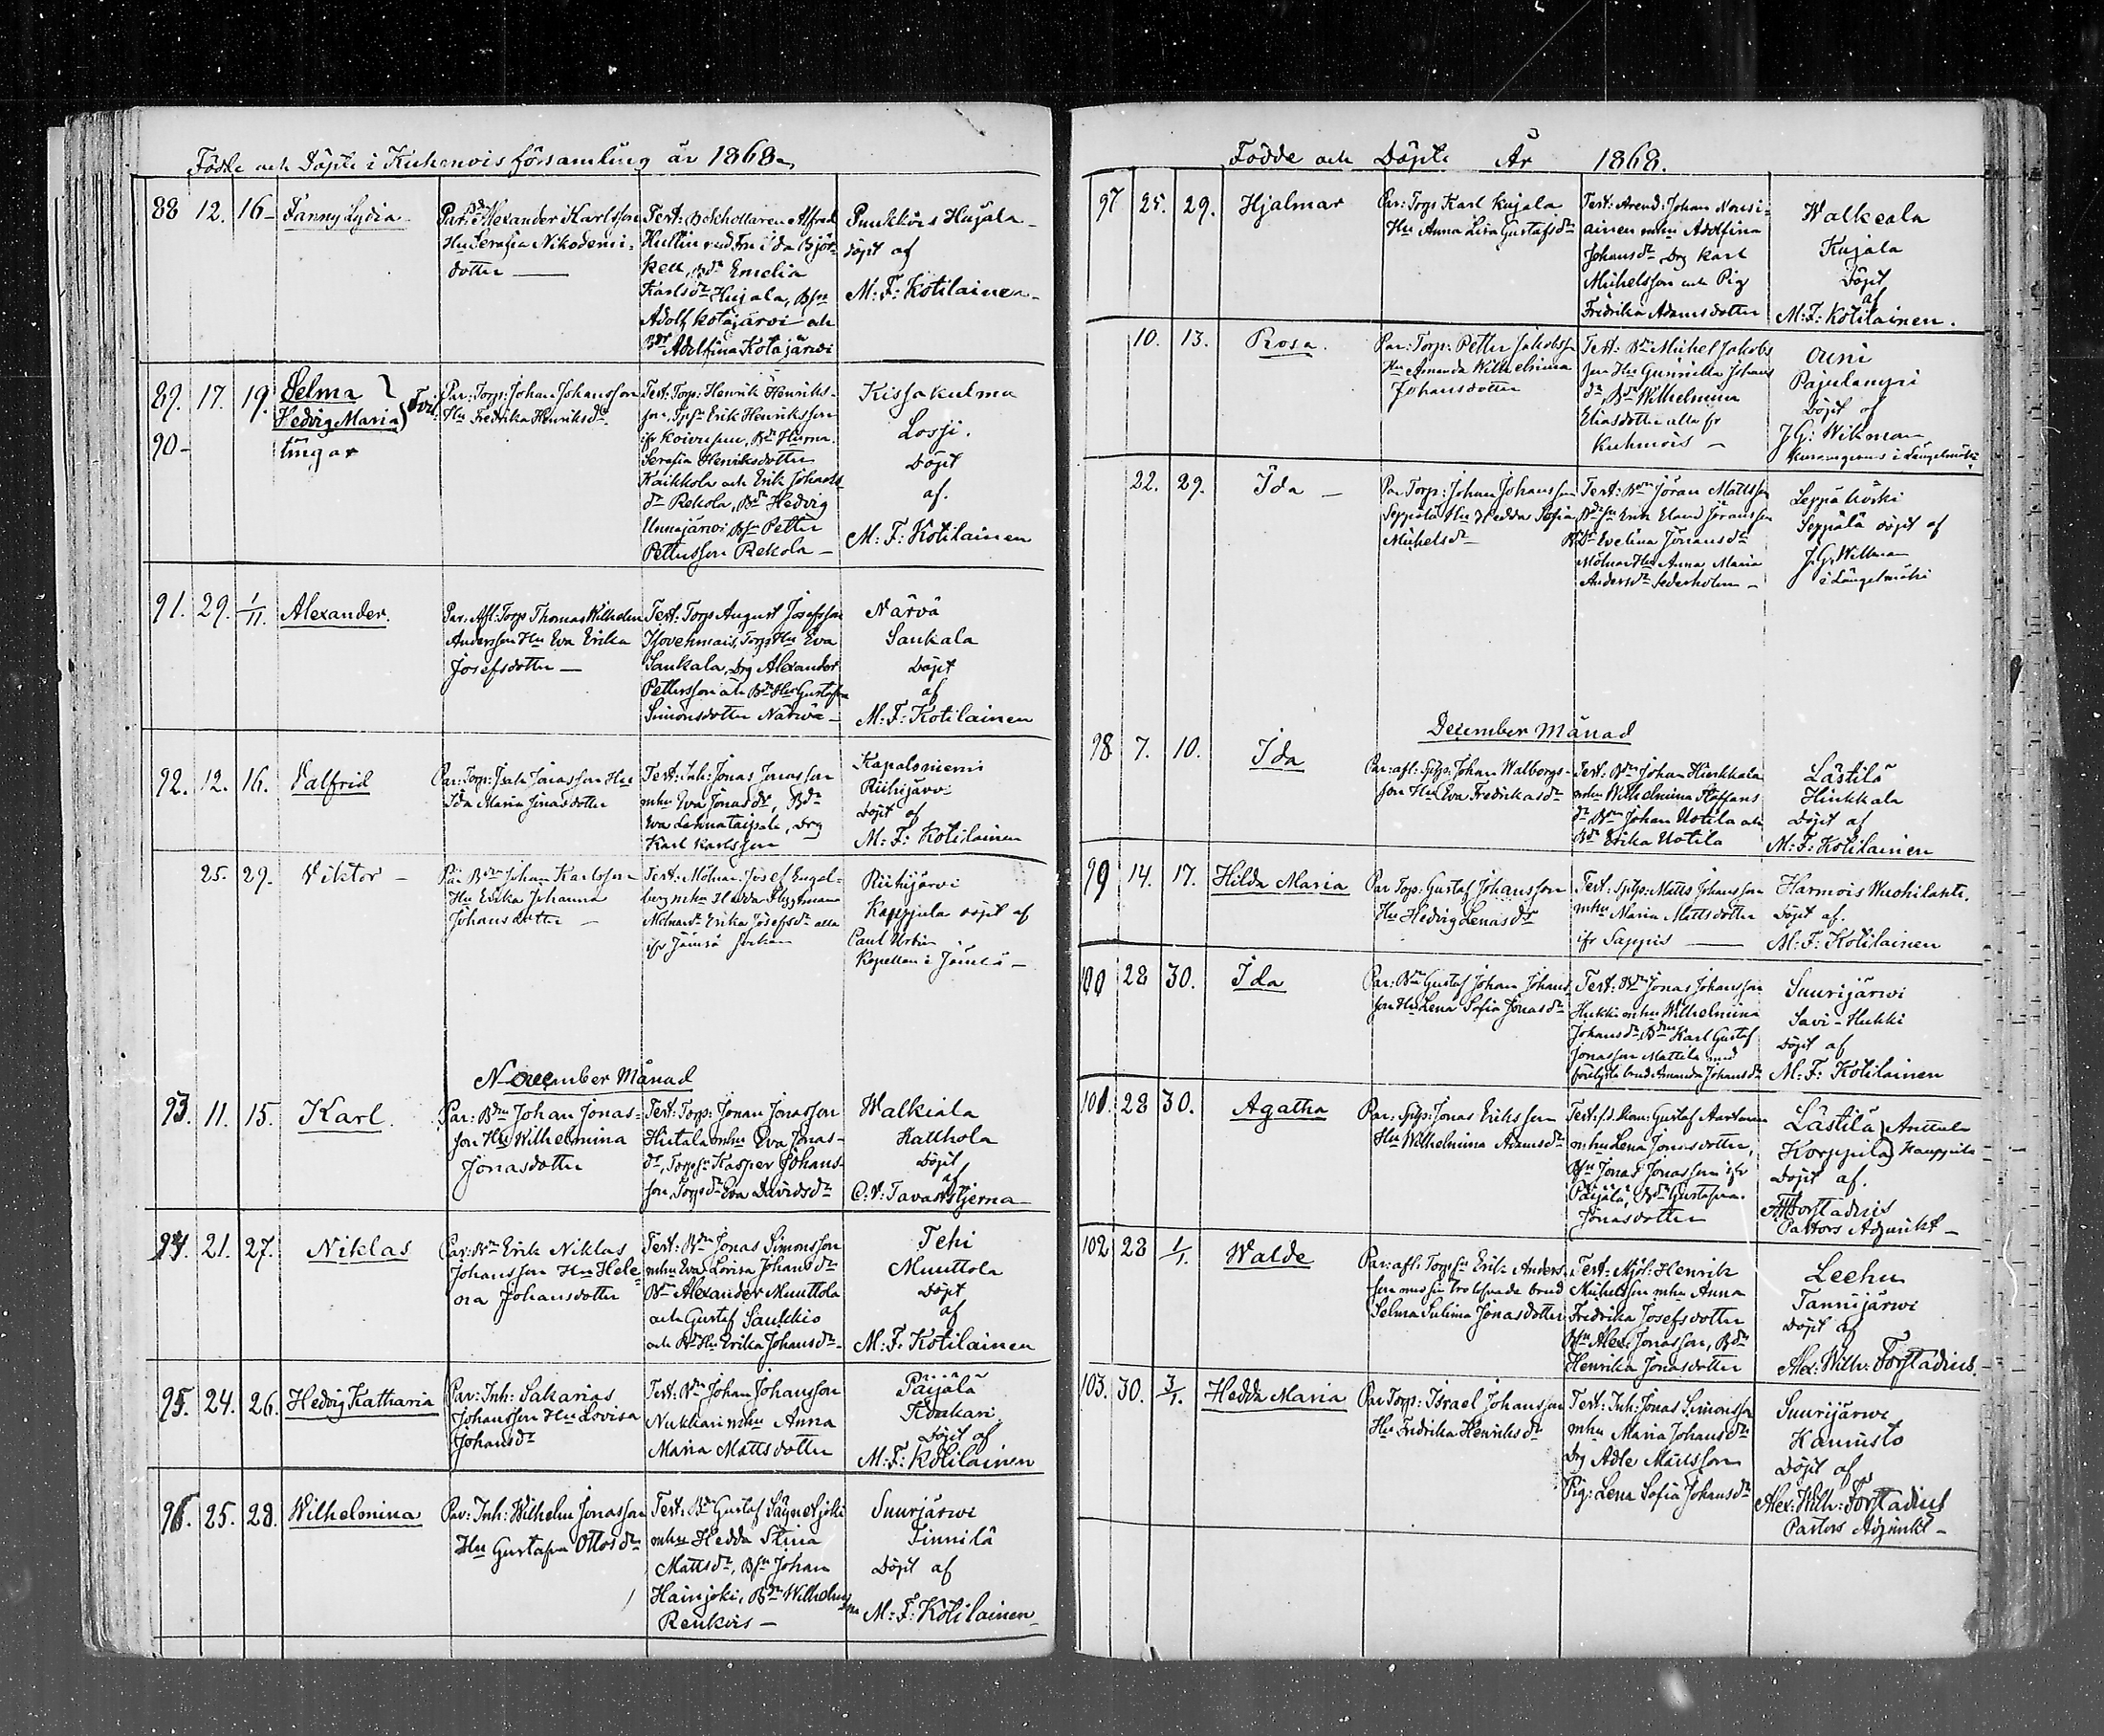 Födde och Döpte i Kuhmois församling år 1868
88 12. 16 Fanny Lydia
Par: Alexander Karlsson
Hu Serafia Nikodemi-
dotter
Test: Bokhollaren Alfred
Hullin
Ida Björ-
Emelia
Karlsdr Hujala,
Adolf Kotajärvi och
Adolfina Kotajärvi
Hujala
döpt af
M: F: Kotilainen
89. 17. 19. Selma
90 Hedvig Maria
lingar
Par: Torp: Johan Johansson
Hu Fredrika Henriksdr
Test: Torp: Henrik Henriks-
son, Erik Henriksson
Serafia Henriksdotter
Kaikkola och Erik Johans
dr Rekola, Hedvig
Unnajärvi Petter
Pettersson Rekola
Kissakulma
Lossi.
Döpt
af.
M: F: Kotilainen
91. 29. 1/11. Alexander.
Par: Afl: Torp Thomas Wilhelm
Andersson Hu Eva Erika
Josefsdotter
Test: Torp August Josefsson
Torps Hu Eva
Saukala, Drg Alexander
Pettersson och Hu Gustafva
Simonsdotter Närvä
Närvä
Saukala
Döpt
af
M: F: Kotilainen
92. 12. 16. Valfrid
Par: Torp: Isak Jonasson Hu
Ida Maria Jonasdotter
Test: Inh: Jonas Jonasson
mhu Eva Jonasdr,
Eva Lehnataipale, Drg
Karl Karlsson
Kapalsniemi
Riihijärvi
Döpt af
M: F: Kotilainen
25. 29. Viktor
Par Johan Karlsson
Hu Erika Johanna
Johansdotter
Test: Mölnar: Josef Engel-
berg mhu Hedda
Erika Josefsdr alla
ifr Jämsä
Riihijärvi
Kappula döpt af
Paul
Kapellan i Jämsä
November Månad
93. 11. 15. Karl.
Par: Johan Jonas-
son Hu Wilhelmina
Jonasdotter
Test: Torp: Jonan Jonasson
Hietala mhu Eva Jonas-
dr, Kasper Johans-
son, Eva Davidsdr
Walkiala
Katthola
Döpt
af
C: V: Tavaststjerna
94. 21. 27. Niklas
Par: Erik Niklas
Johansson Hu Hele-
na Johansdotter
Test: Jonas Simonsson
mhu Eva Lovisa Johansdr
Alexander Muuttola
och Gustaf Saukkio
och Hu Erika Johansdr
Tehi
Muuttola
Döpt
af
M. F. Kotilainen
95. 24. 26. Hedvig Katharia
Par: Inh: Sakarias
Johansson Hu Lovisa
Johansdr
Test: Johan Johansson
Nukkari mhu Anna
Maria Mattsdotter
Päijälä
Döpt af
M: F: Kotilainen
96. 25. 28. Wilhelmina
Par: Inh: Wilhelm Jonasson
Hu Gustafva Ottosdr
Test: Gustaf Säynetjoki
mhu Hedda Stina
Mattsdr, Johan
Hainjoki, Wilhelmina
Renkois
Suurjärvi
Tinnilä
Döpt af
M: F: Kotilainen
Födde och Döpte År 1868.
97 25. 29. Hjalmar
Par: Torp Karl Kujala
Hu Anna Lisa Gustafsdr
Test: Arend: Johan Nousi-
ainen mhu Adolfina
Johansdr Drg Karl
Michelsson och Pig
Fredrika Adamsdotter
Walkeala
Kujala
Döpt
af
M: F: Kotilainen.
10. 13. Rosa.
Par: Torp: Petter Jakobsson
Hu Amanda Wilhelmina
Johansdotter
Test: Michel Jakobs
son Hu Gunniella Johans
dr, Wilhelmina
Eliasdotter alla fr
Kuhmois
Ouni
Pajulampi
Döpt af
J. G: Wikman
i Längelmäki
22. 29. Ida
Par Torp: Johan Johansson
Seppälä Hu Hedda Sofia
Michelsdr
Test: Jöran Mattsson
Erik Eland Jöransson
Evelina Jöransdr
Mölnar Hu Anna Maria
Andersdr Sederholm
Leppäkoski
Seppälä döpt af
J. G. Wikman
i Längelmäki
December Månad
98 7. 10. Ida
Par: afl: Johan Walborgs-
son Hu Eva Fredrikasdr
Test: Johan Hinkkala
mhu Wilhelmina Staffans
dr Johan Uotila och
Erika Uotila
Lästilä
Hinkkala
Döpt af
M: F: Kotilainen
99 14. 17. Hilda Maria
Par Torp: Gustaf Johansson
Hu Hedvig Lenasdr
Test: Matts Johansson
mhu Maria Mattsdotter
ifr Sappis
Harmois Wuohilahti.
Döpt af.
M: F: Kotilainen
100 28 30. Ida
Par: Gustaf Johan Johans
son Hu Lena Sofia Jonasdr
Test: Jonas Johansson
Hukki mhu Wilhelmina
Johansdr, Karl Gustaf
Jonasson Mattila med
brud Amanda Johansdr
Suurijärvi
Savi-Hukki
Döpt af
M: F: Kotilainen
101. 28 30. Agatha
Par: Jonas Eriksson
Hu Wilhelmina Adamsdr
Test: Gustaf
mhu Lena Jonasdotter,
Jonas Jonasson ifr
Päijälä, Gustafva
Jonasdotter
Lästilä Anttula
Korppila Kauppila
Döpt af.
Forstadius
Pastors Adjunkt
102 28 1/1. Walde
Par: afl: Erik Anders-
son med sin trolofvade brud
Selma Sulima Jonasdotter
Test: Mjöl: Henrik
Michelsson mhu Anna
Fredrika Josefsdotter
Alex: Jonasson,
Henrika Jonasdotter
Leehu
Tannijärvi
Döpt af
Alex: Wilh: Forstadius.
103. 30. 3/1. Hedda Maria
Par Torp: Israel Johansson
Hu Fredrika Henriksdr
Test: Inh: Jonas Simonsson
mhu Maria Johansdr
Drg Adle Mattsson
Pig: Lena Sofia Johansdr
Suurijärvi
Kamusto
Döpt af
Alex: Wilh: Forstadius
Pastors Adjunkt